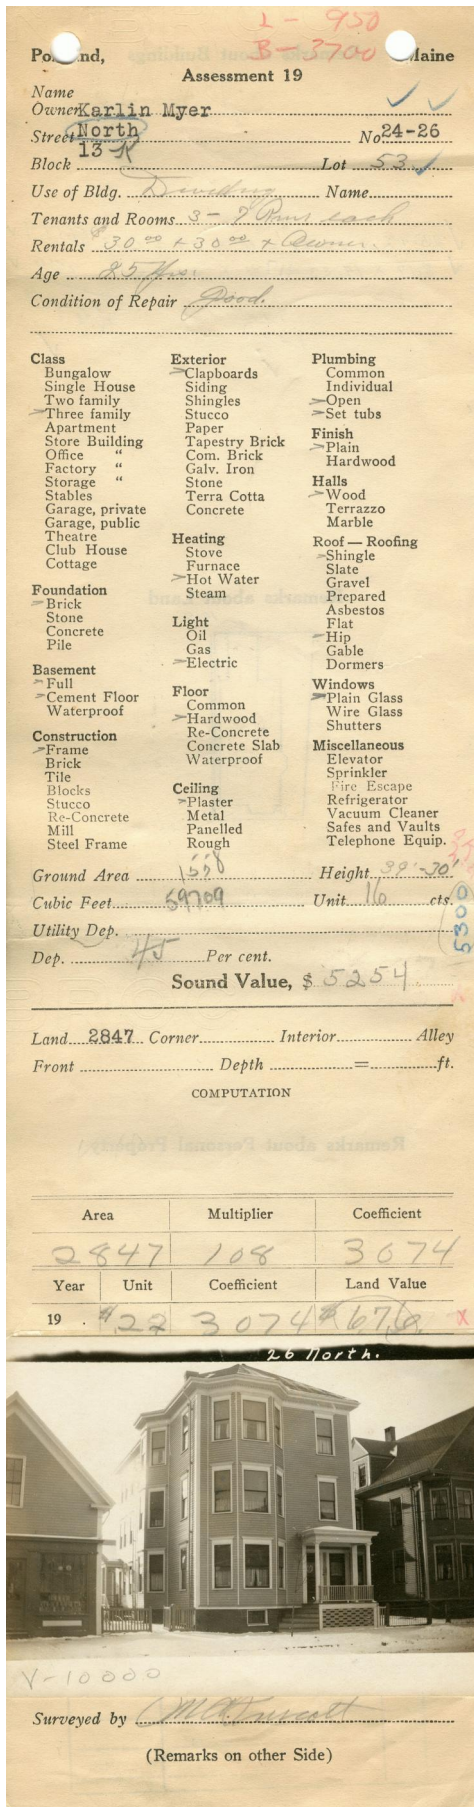 L - 950
B - 3700
Portland, Maine
Assessment 19
Name
Owner Karlin Myer
Street North No. 24-26
13-K
Block Lot 53
Use of Bldg. Dwelling Name
Tenants and Rooms 3 - 7 Rms each
Rentals $30.00 + 30.00 + Owner.
Age 25 Yrs.
Condition of Repair Good.
Class
Bungalow
Single House
Two family
Three family
Apartment
Store Building
Office "
Factory "
Storage "
Stables
Garage, private
Garage, public
Theatre
Club House
Cottage
Foundation
Brick
Stone
Concrete
Pile
Basement
Full
Cement Floor
Waterproof
Construction
Frame
Brick
Tile
Blocks
Stucco
Re-Concrete
Mill
Steel Frame
Exterior
Clapboards
Siding
Shingles
Stucco
Paper
Tapestry Brick
Com. Brick
Galv. Iron
Stone
Terra Cotta
Concrete
Heating
Stove
Furnace
Hot Water
Steam
Light
Oil
Gas
Electric
Floor
Common
Hardwood
Re-Concrete
Concrete Slab
Waterproof
Ceiling
Plaster
Metal
Panelled
Rough
Plumbing
Common
Individual
Open
Set tubs
Finish
Plain
Hardwood
Halls
Wood
Terrazzo
Marble
Roof — Roofing
Shingle
Slate
Gravel
Prepared
Asbestos
Flat
Hip
Gable
Dormers
Windows
Plain Glass
Wire Glass
Shutters
Miscellaneous
Elevator
Sprinkler
Fire Escape
Refrigerator
Vacuum Cleaner
Safes and Vaults
Telephone Equip.
Ground Area 1558 Height 39'-30'
Cubic Feet 59709 Unit 16 cts.
5300
Utility Dep.
Dep. 45 Per cent.
Sound Value, $ 5254
Land 2847 Corner Interior Alley
Front Depth = ft.
COMPUTATION
Area Multiplier Coefficient
2847 108 3074
Year Unit Coefficient Land Value
19 . $22 3074 $676. X
26 North.
V-10000
Surveyed by
(Remarks on other Side)